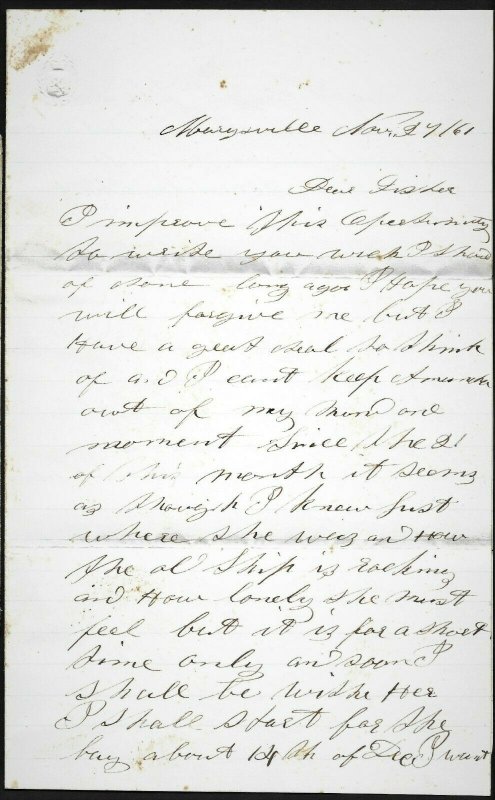 Marysville Nov. 27/61
Dear Sister
I improve this Opertunity
to write you wich I should
of done long ago I Hope you
will forgive me but I
Have a great deal to think
of and I cant keep Amanda
out of my mind one
moment Since the 21
of this month it seems
as though I knew Just
where she was an How
the ol Ship is rocking
and How lonely she must
feel but it is for a short
time only an soon I
shall be withe Her
I shall start for the
bay about 14th of Dec I want